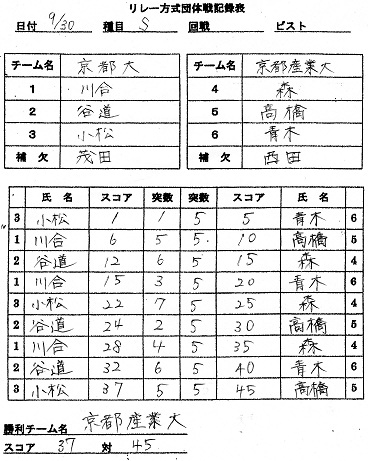 リレー方式団体戦記録表
日付 9/30 種目 S 回戦 ピスト
チーム名 京都大 チーム名 京都産業大
1 川合 4 森
2 谷道 5 高橋
3 小松 6 青木
補欠 茂田 補欠 西田
氏名 スコア 突数 突数 スコア 氏名
3 小松 1 1 5 5 青木 6
1 川合 6 5 5 10 高橋 5
2 谷道 12 6 5 15 森 4
1 川合 15 3 5 20 青木 6
3 小松 22 7 5 25 森 4
2 谷道 24 2 5 30 高橋 5
1 川合 28 4 5 35 森 4
2 谷道 32 6 5 40 青木 6
3 小松 37 5 5 45 高橋 5
勝利チーム名 京都産業大
スコア 37 対 45